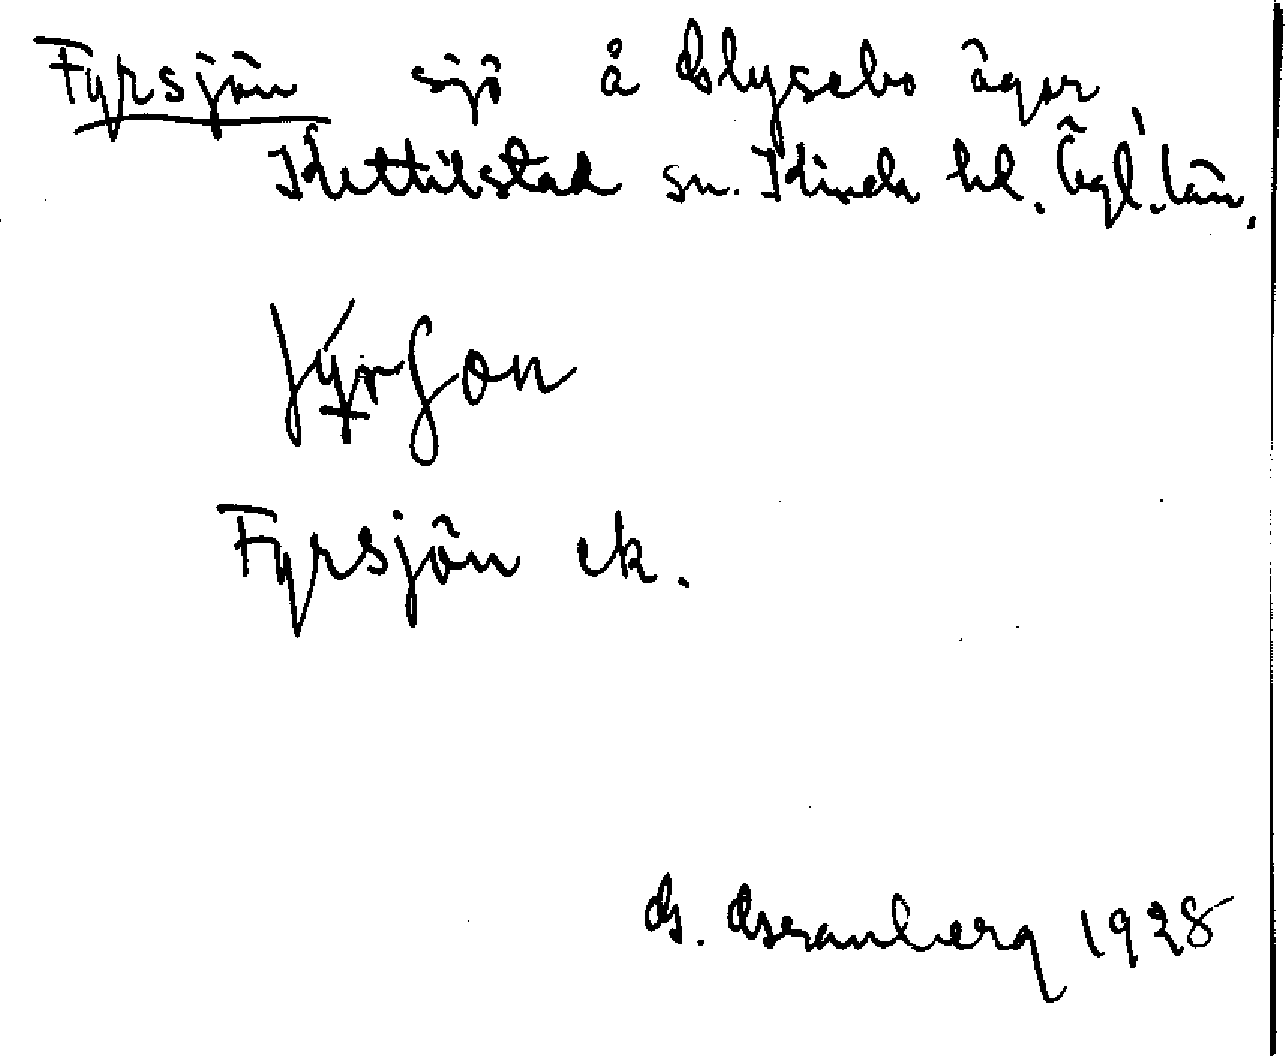 Fyrsjön sjö å Blysebo ägor
Kettilstad sn. Kinda hd. Ögl. län.
Fyrsjön ek.
G. Granberg 1928